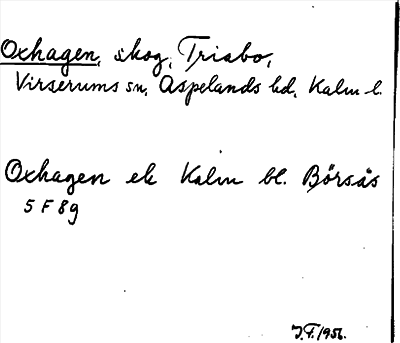 Oxhagen, skog, Triabo,
Virserums sn, Aspelands hd, Kalm l.
Oxhagen ek Kalm bl. Börsås
5 F 8g
J.F. 1956.